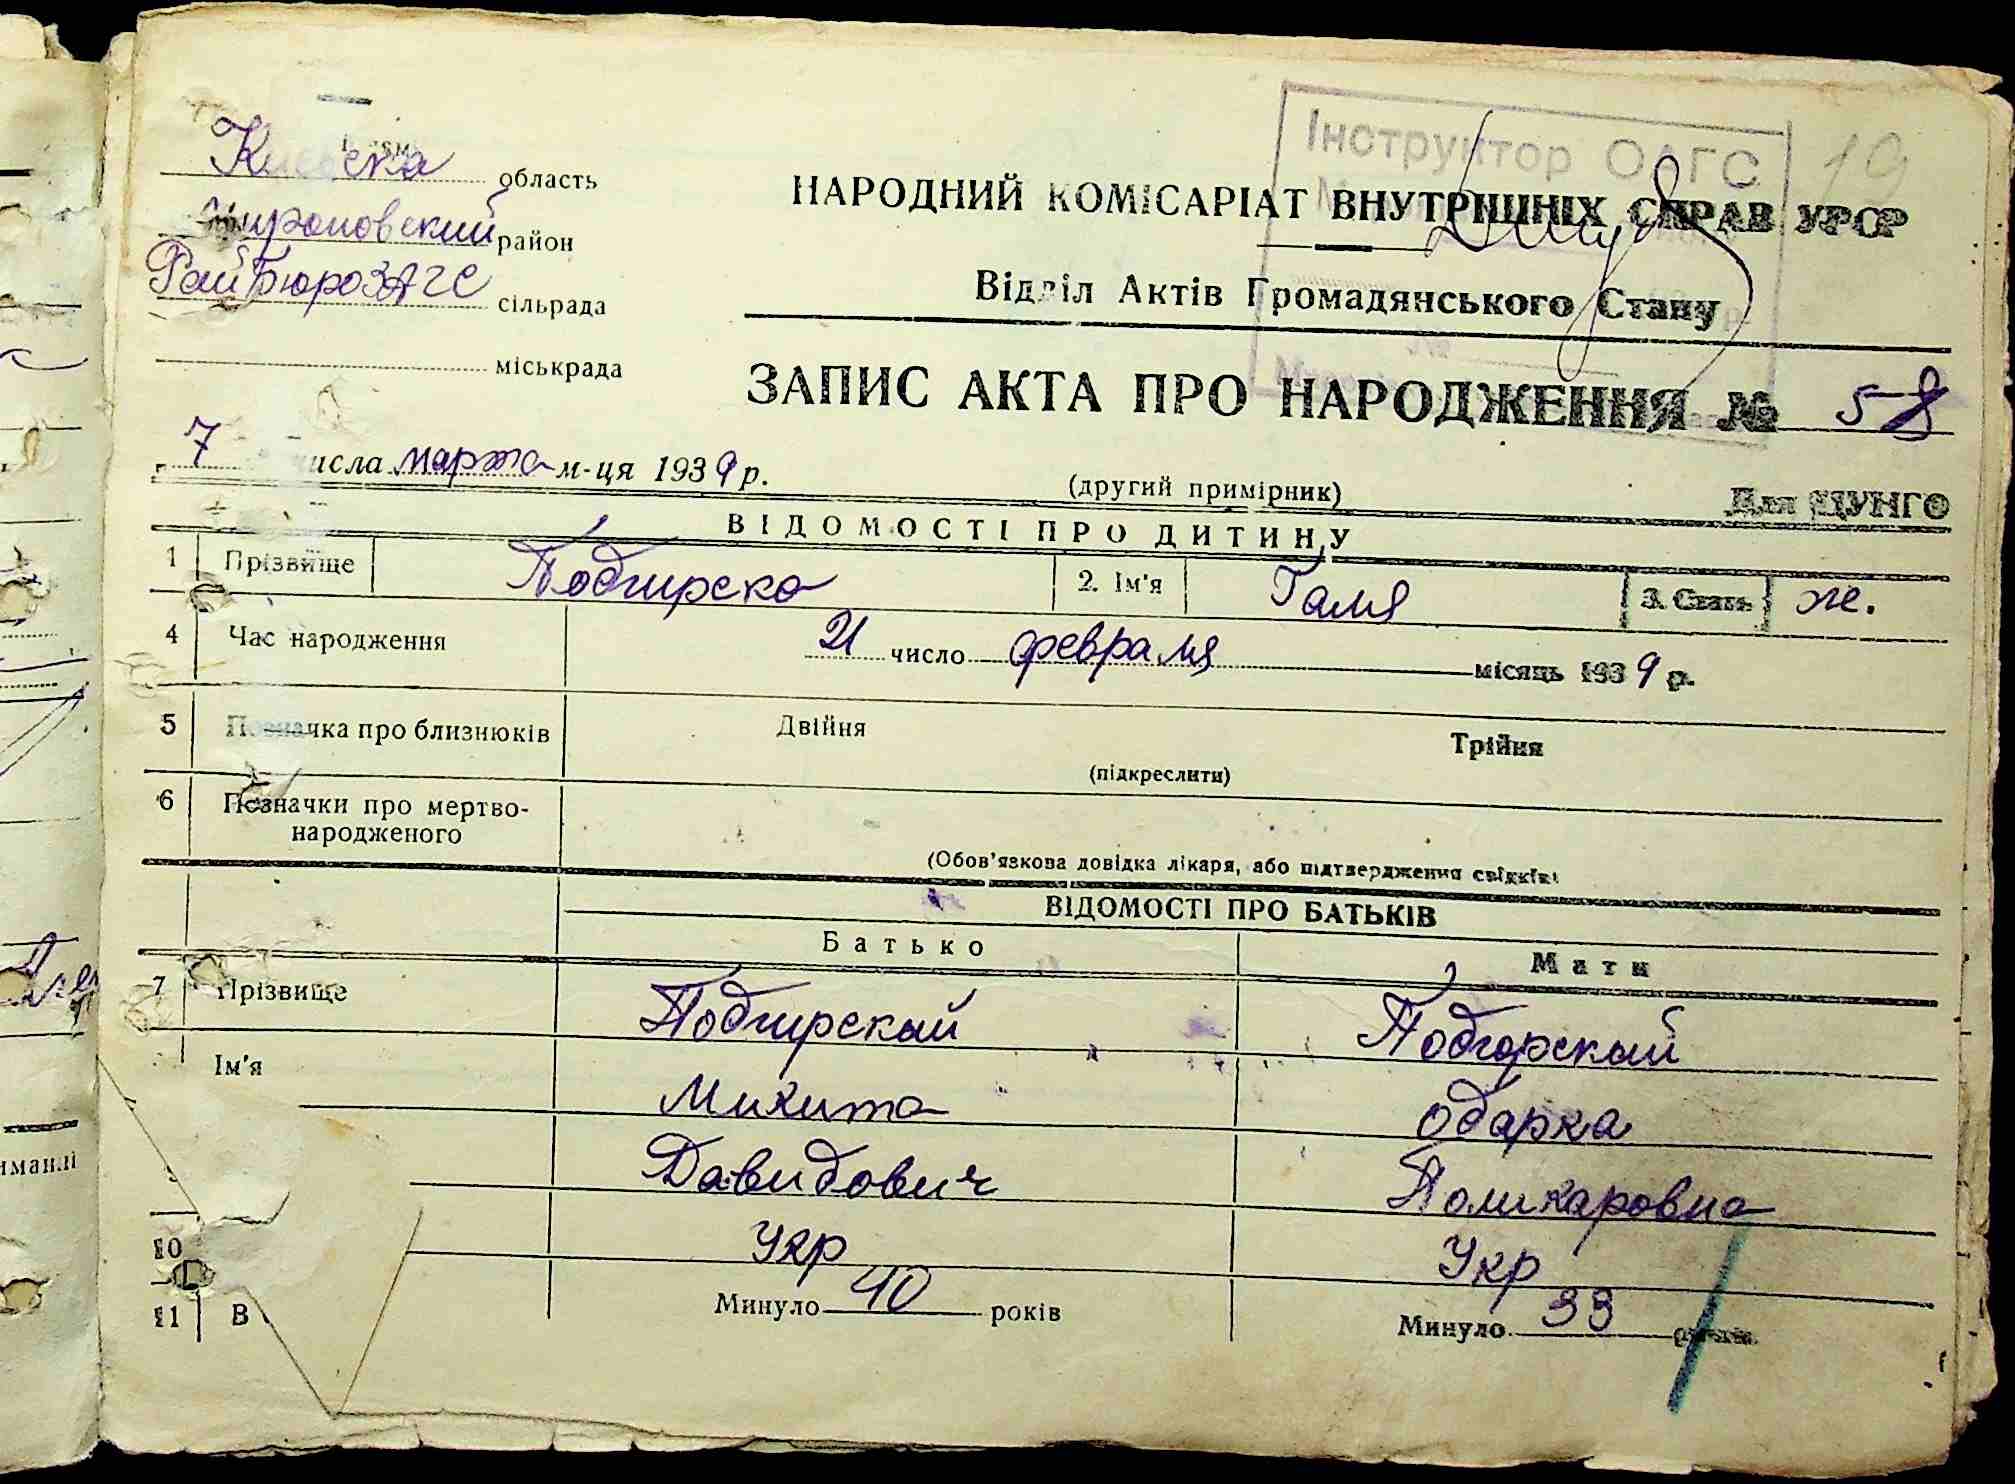 Киевска область
Мироновский район
РайБюроЗАГС сільрада
міськрада
Інструктор ОАГС
19
НАРОДНИЙ КОМІСАРІАТ ВНУТРІШНІХ СПРАВ УРСР
Відділ Актів Громадянського Стану
ЗАПИС АКТА ПРО НАРОДЖЕННЯ № 58
7 числа марта м-ця 1939 р.
(другий примірник)
Для ЦУНГО
ВІДОМОСТІ ПРО ДИТИНУ
1 Прізвище Подгирска 2. Ім'я Галя 3. Стать ж.
4 Час народження 21 число февраля місяць 1939 р.
5 Позначка про близнюків Двійня Трійня
(підкреслити)
6 Позначки про мертво-
народженого
(Обов'язкова довідка лікаря, або підтвердження свідків)
ВІДОМОСТІ ПРО БАТЬКІВ
Батько Мати
7 Прізвище Подгирский Подгорский
Ім'я Микита Одарка
Давидович Поликаровна
10 Укр Укр
11 В Минуло 40 років Минуло 33 років
иманні